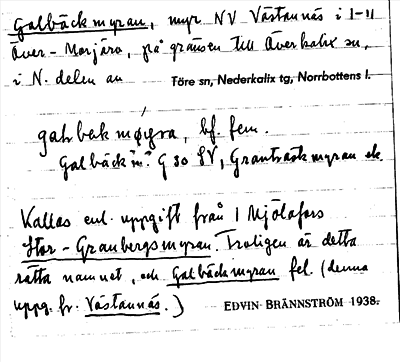 Galbäckmyran, myr NV Västannäs i 1-11
Över-Morjärv, på gränsen till Överkalix sn,
i N. delen av Töre sn, Nederkalix tg, Norrbottens l.
bf. fem.
Galbäckm. G 30 SV, Granträskmyran ek.
Kallas enl. uppgift från 1 Mjölafors
Stor-Granbergsmyran. Troligen är detta
rätta namnet, och Galbäckmyran fel. (denna
uppg. fr. Västannäs.) EDVIN BRÄNNSTRÖM 1938.